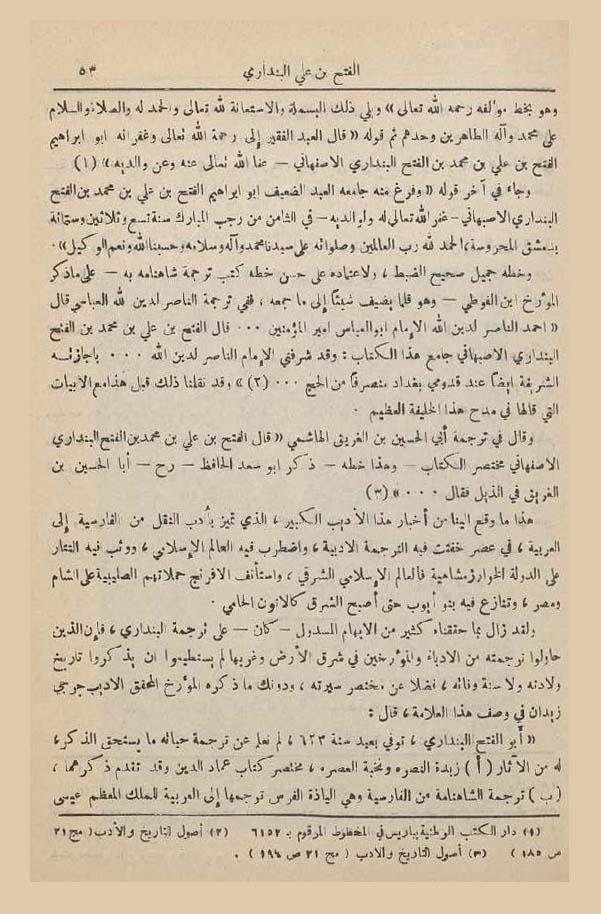 الفتح بن علي البنداري ٥٣
وهو بخط مؤلفه رحمه الله تعالى» ويلي ذلك البسملة والاستعانة لله تعالى والحمد له والصلاة والسلام
على محمد وآله الطاهرين وحدهم ثم قوله «قال العبد الفقير إلى رحمة الله تعالى وغفرانه ابو ابراهيم
الفتح بن علي بن محمد بن الفتح البنداري الاصفهاني — عفا الله تعالى عنه وعن والديه» (١)
وجاء في آخر قوله «وفرغ منه جامعه العبد الضعيف ابو ابراهيم الفتح بن علي بن محمد بن الفتح
البنداري الاصبهاني - غفر الله تعالى له ولوالديه - في الثامن من رجب المبارك سنة تسع وثلاثين وستمائة
بدمشق المحروسة، الحمد لله رب العالمين وصلواته على سيدنا محمد وآله وسلامه وحسبنا الله ونعم الوكيل» .
وخطه جميل صحيح الضبط ، ولاعتماده على حسن خطه كتب ترجمة شاهنامه به — على ما ذكر
المؤرخ ابن الفوطي — وهو قلما يضيف شيئاً إلى ما جمعه ، ففي ترجمة الناصر لدين لله العباسي قال
« احمد الناصر لدين الله الإمام ابو العباس امير المؤمنين ... قال الفتح بن علي بن محمد بن الفتح
البنداري الاصبهاني جامع هذا الكتاب : وقد شرفني الإمام الناصر لدين الله ... باجازته
الشريفة ايضاً عند قدومي بغداد منصرفاً من الحج ... (٢) » وقد نقلنا ذلك قبل هذا مع الأبيات
التي قالها في مدح هذا الخليفة العظيم .
وقال في ترجمة أبي الحسين بن الغريق الهاشمي « قال الفتح بن علي بن محمد بن الفتح البنداري
الاصفهاني مختصر الكتاب — وهذا خطه — ذكر ابو سعد الحافظ — رح — أبا الحسين بن
الغريق في الذيل فقال ... » (٣)
هذا ما وقع الينا من أخبار هذا الأديب الكبير ، الذي تميز بأدب النقل من الفارسية إلى
العربية ، في عصر خفتت فيه الترجمة الادبية ، واضطرب فيه العالم الإسلامي ، ووثب فيه التتار
على الدولة الخوارزمشاهية فالعالم الإسلامي الشرقي ، واستأنف الافرنج حملاتهم الصليبية على الشام
ومصر ، وتنازع فيه بنو أيوب حتى أصبح الشرق كالأتون الحامي .
ولقد زال بما حققناه كثير من الإبهام المسدول — كان — على ترجمة البنداري ، فإن الذين
حاولوا ترجمته من الادباء والمؤرخين في شرق الأرض وغربها لم يستطيعوا ان يذكروا تاريخ
ولادته ولا سنة وفاته ، فضلا عن مختصر سيرته ، ودونك ما ذكره المؤرخ المحقق الاديب جرجي
زيدان في وصف هذا العلامة ، قال :
« أبو الفتح البنداري ، توفي بعيد سنة ٦٢٣ ، لم نعلم عن ترجمة حياته ما يستحق الذكر ،
له من الآثار ( أ ) زبدة النصرة ونخبة العصرة ، مختصر كتاب عماد الدين وقد تقدم ذكرهما ،
( ب ) ترجمة الشاهنامة من الفارسية وهي الياذة الفرس ترجمها إلى العربية للملك المعظم عيسى
(١) دار الكتب الوطنية بباريس في المخطوط المرقوم بـ ٦١٥٢ (٢) أصول التاريخ والأدب ( مج ٢١
ص ١٨٥ ) (٣) أصول التاريخ والادب ( مج ٢١ ص ١٩٤ ) .